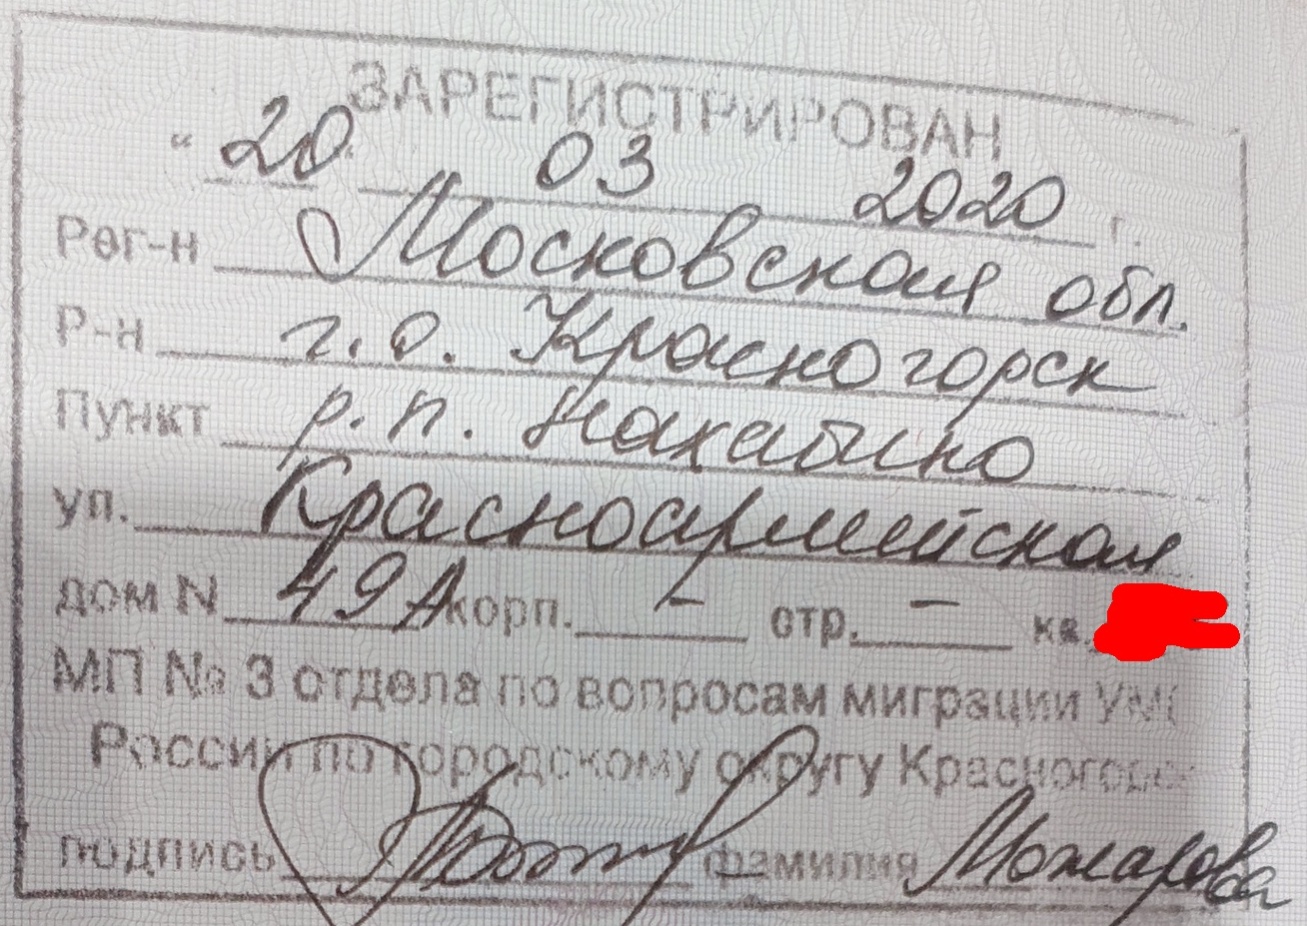 ЗАРЕГИСТРИРОВАН
" 20. 03 2020 г.
Рег-н Московская обл.
Р-н г.о. Красногорск
Пункт р.п. Нахабино
ул. Красноармейская
дом N 49А корп. - стр. - кв.
МП № 3 отдела по вопросам миграции УМ
России по городскому округу Красногорс
подпись фамилия Можарова